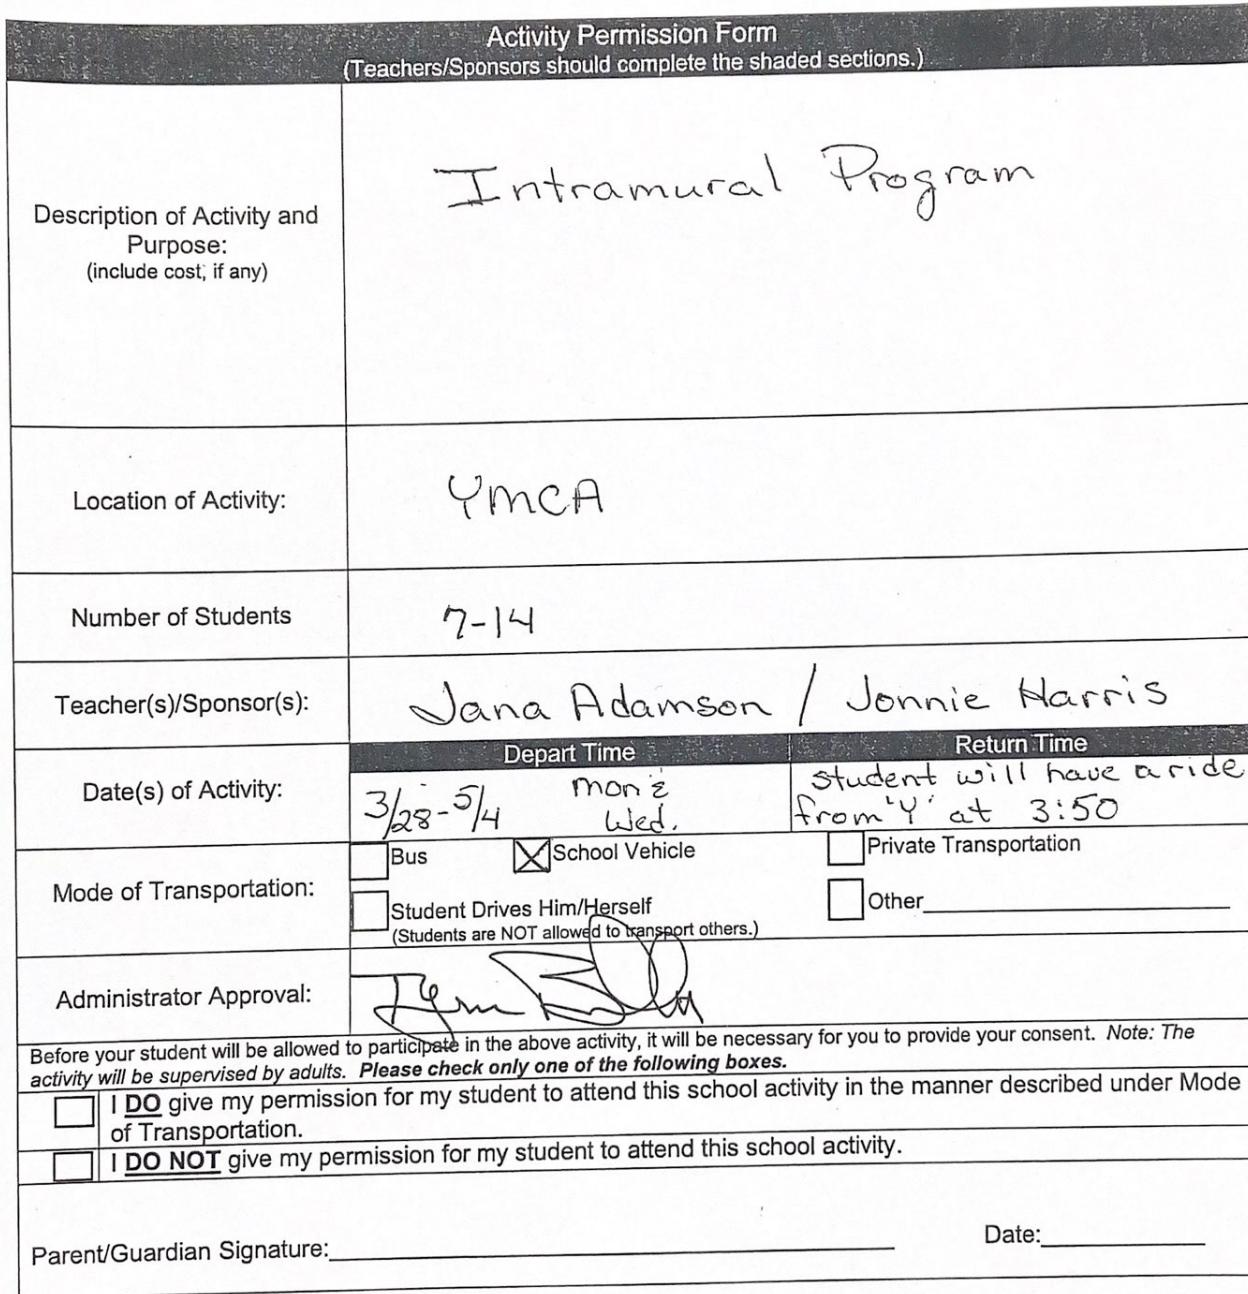 Activity Permission Form
(Teachers/Sponsors should complete the shaded sections.)
Description of Activity and
Purpose:
(include cost, if any)
Intramural Program
Location of Activity:
YMCA
Number of Students
7-14
Teacher(s)/Sponsor(s):
Jana Adamson / Jonnie Harris
Date(s) of Activity:
Depart Time
3/28-5/4 mon &
Wed.
Return Time
student will have a ride
from 'Y' at 3:50
Mode of Transportation:
Bus
School Vehicle
Private Transportation
Student Drives Him/Herself
(Students are NOT allowed to transport others.)
Other
Administrator Approval:
Before your student will be allowed to participate in the above activity, it will be necessary for you to provide your consent. Note: The
activity will be supervised by adults. Please check only one of the following boxes.
I DO give my permission for my student to attend this school activity in the manner described under Mode
of Transportation.
I DO NOT give my permission for my student to attend this school activity.
Parent/Guardian Signature:
Date: